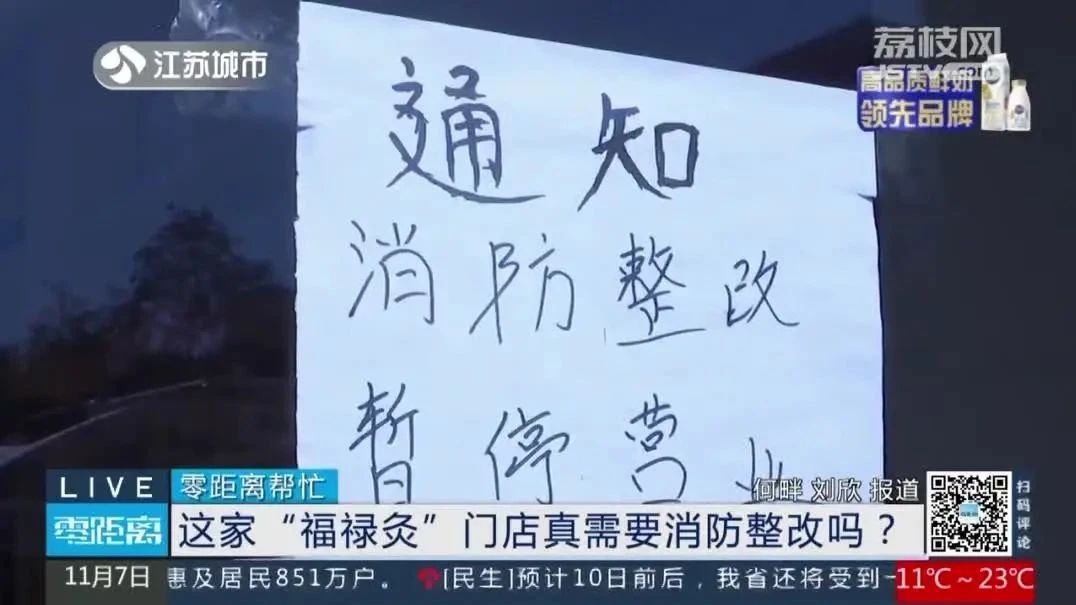 江苏城市
荔枝网
JSTV.com
高品质鲜奶
领先品牌
通知
消防整改
暂停营业
LIVE
零距离帮忙
何畔 刘欣 报道
零距离
这家“福禄灸”门店真需要消防整改吗？
扫码评论
11月7日
惠及居民851万户。
[民生]预计10日前后，我省还将受到一
11℃～23℃